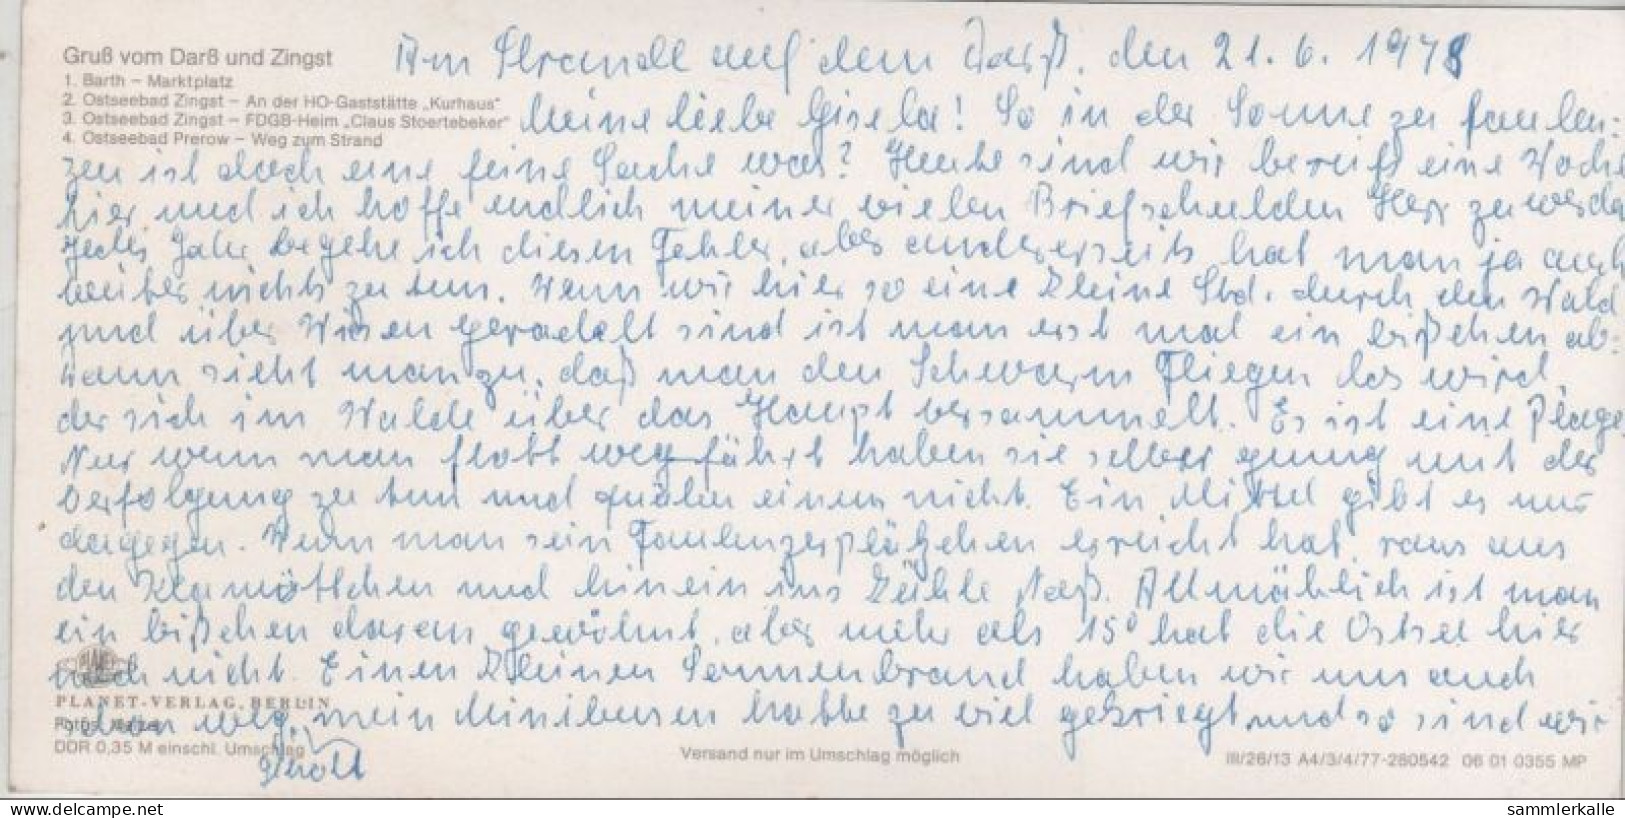 Gruß vom Darß und Zingst
1. Barth – Marktplatz
2. Ostseebad Zingst – An der HO-Gaststätte „Kurhaus"
3. Ostseebad Zingst – FDGB-Heim „Claus Stoertebeker"
4. Ostseebad Prerow – Weg zum Strand
Am Strande auf dem Darß, den 21. 6. 1978
Meine liebe Gisela! So in der Sonne zu faulen:
zen ist doch eine feine Sache was? Heute sind wir bereits eine Woche
hier und ich hoffe endlich meiner vielen Briefschulden Herr zu werden
Jedes Jahr begehe ich diesen Fehler, aber andererseits hat man ja auch
weiter nichts zu tun. Wenn wir hier so eine kleine Std. durch den Wald
und über Wiesen geradelt sind ist man erst mal ein bißchen ab:
wann sieht man zu, daß man den Schwarm Fliegen los wird,
der sich im Walde über das Haupt versammelt. Es ist eine Plage
Nur wenn man flott weg fährt haben sie selber genug mit der
Verfolgung zu tun und quälen einen nicht. Ein Mittel gibt es nur
dagegen. Wenn man sein Faulenzerplätzchen erreicht hat, raus aus
den Klamöttchen und hinein ins kühle Naß. Allmählich ist man
ein bißchen daran gewöhnt, aber mehr als 15° hat die Ostsee hier
noch nicht. Einen kleinen Sonnenbrand haben wir uns auch
schon weg, mein Minibusen hatte zu viel gekriegt und so sind wir
PLANET-VERLAG, BERLIN
DDR 0,35 M einschl. Umschlag
Versand nur im Umschlag möglich
III/26/13 A4/3/4/77-280542 06 01 0355 MP
www.delcampe.net
sammlerkalle